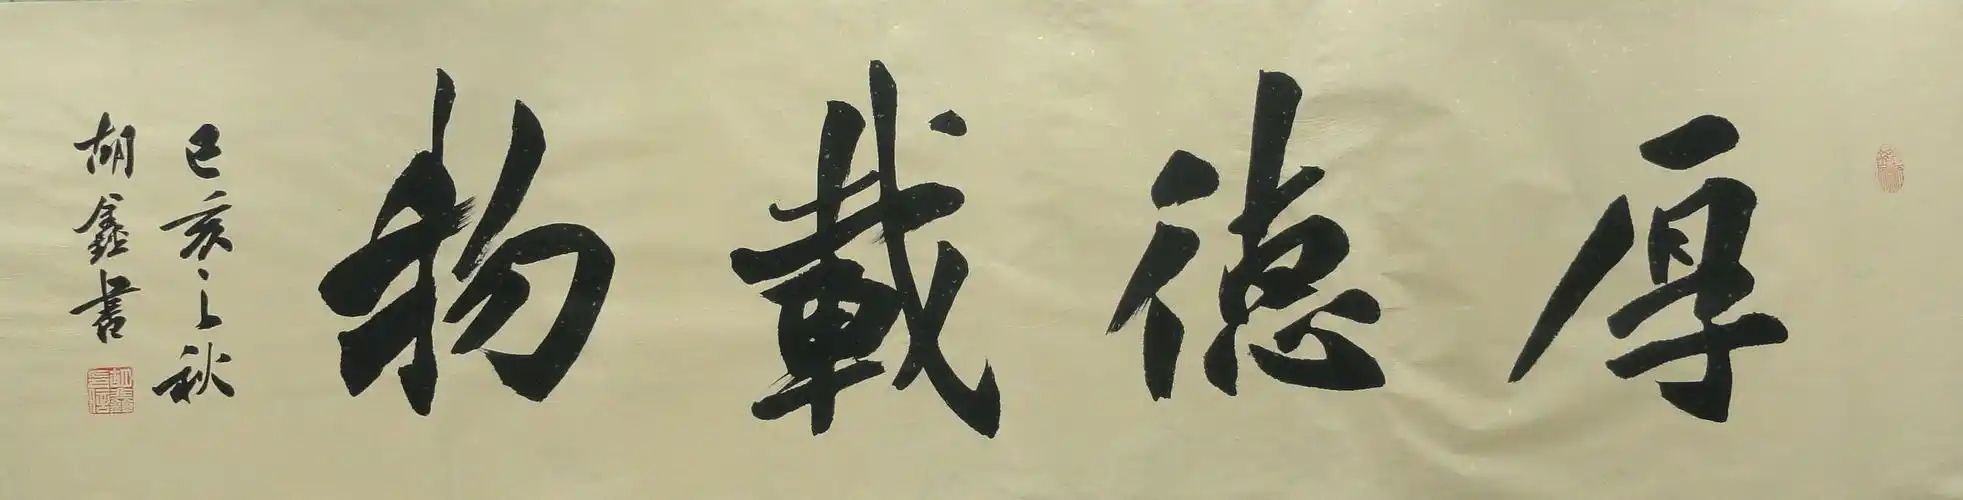 厚德載物
己亥之秋
胡鑫書